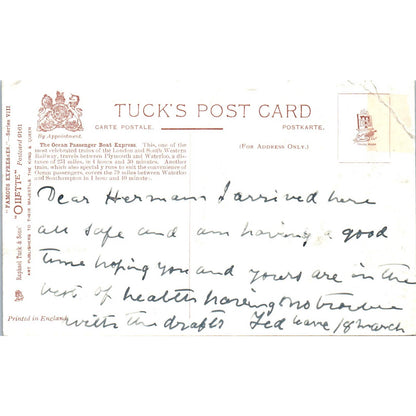 TUCK'S POST CARD
By Appointment.
CARTE POSTALE.
POSTKARTE.
(FOR ADDRESS ONLY.)
The Ocean Passenger Boat Express. This, one of the
most celebrated trains of the London and South Western
Railway, travels between Plymouth and Waterloo, a dis-
tance of 231 miles, in 4 hours and 30 minutes. Another
which also special y runs to suit the convenience of
Ocean passengers, covers the 79 miles between Waterloo
and Southampton in 1 hour and 40 minutes.
"FAMOUS EXPRESSES"—Series VIII
Raphael Tuck & Sons' "OILETTE" Postcard 9161
ART PUBLISHERS TO THEIR MAJESTIES THE KING & QUEEN
Dear Hermans I arrived here
all safe and am having a good
time hoping you and yours are in the
best of health having no trouble
with the drafts Ted 18 March
Printed in England